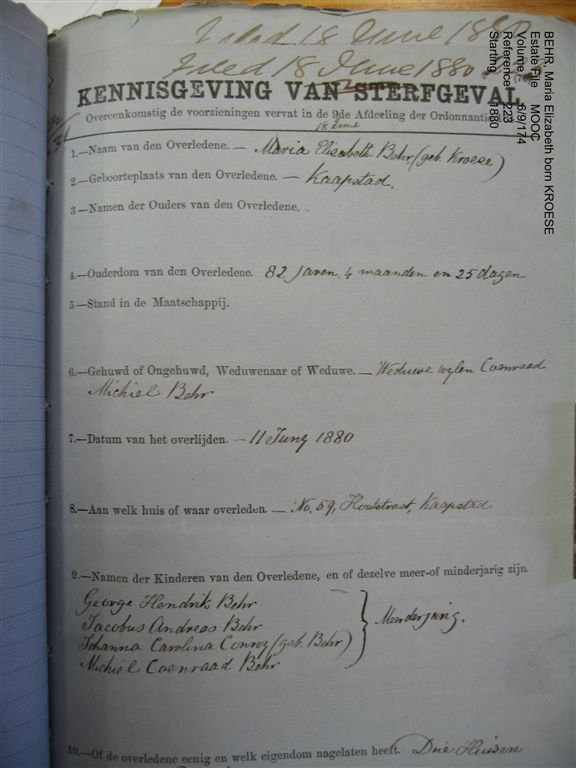 Filed 18 June 1880
Filed 18 June 1880
KENNISGEVING VAN STERFGEVAL,
Overeenkomstig de voorzieningen vervat in de 9de Afdeeling der Ordonnantie
18 June
1.—Naam van den Overledene. — Maria Elisabeth Behr (geb. Kroese)
2.—Geboorteplaats van den Overledene. — Kaapstad.
3—Namen der Ouders van den Overledene.
4.—Ouderdom van den Overledene. 82 Jaren, 4 maanden en 25 dagen
5—Stand in de Maatschappij.
6.—Gehuwd of Ongehuwd, Weduwenaar of Weduwe. — Weduwe wylen Coenraad
Michiel Behr
7.—Datum van het overlijden. — 11 Juny 1880
8.—Aan welk huis of waar overleden — No. 59, Houtstraat, Kaapstad
9.—Namen der Kinderen van den Overledene, en of dezelve meer-of minderjarig zijn.
George Hendrik Behr
Jacobus Andreas Behr
Johanna Carolina Conroy (geb. Behr)
Michiel Coenraad Behr
Meerderjarig.
10.—Of de overledene eenig en welk eigendom nagelaten heeft. Drie Huisen
BEHR, Maria Elizabeth born KROESE
Estate File MOOC
Volume 6/9/174
Reference 223
Starting 1880